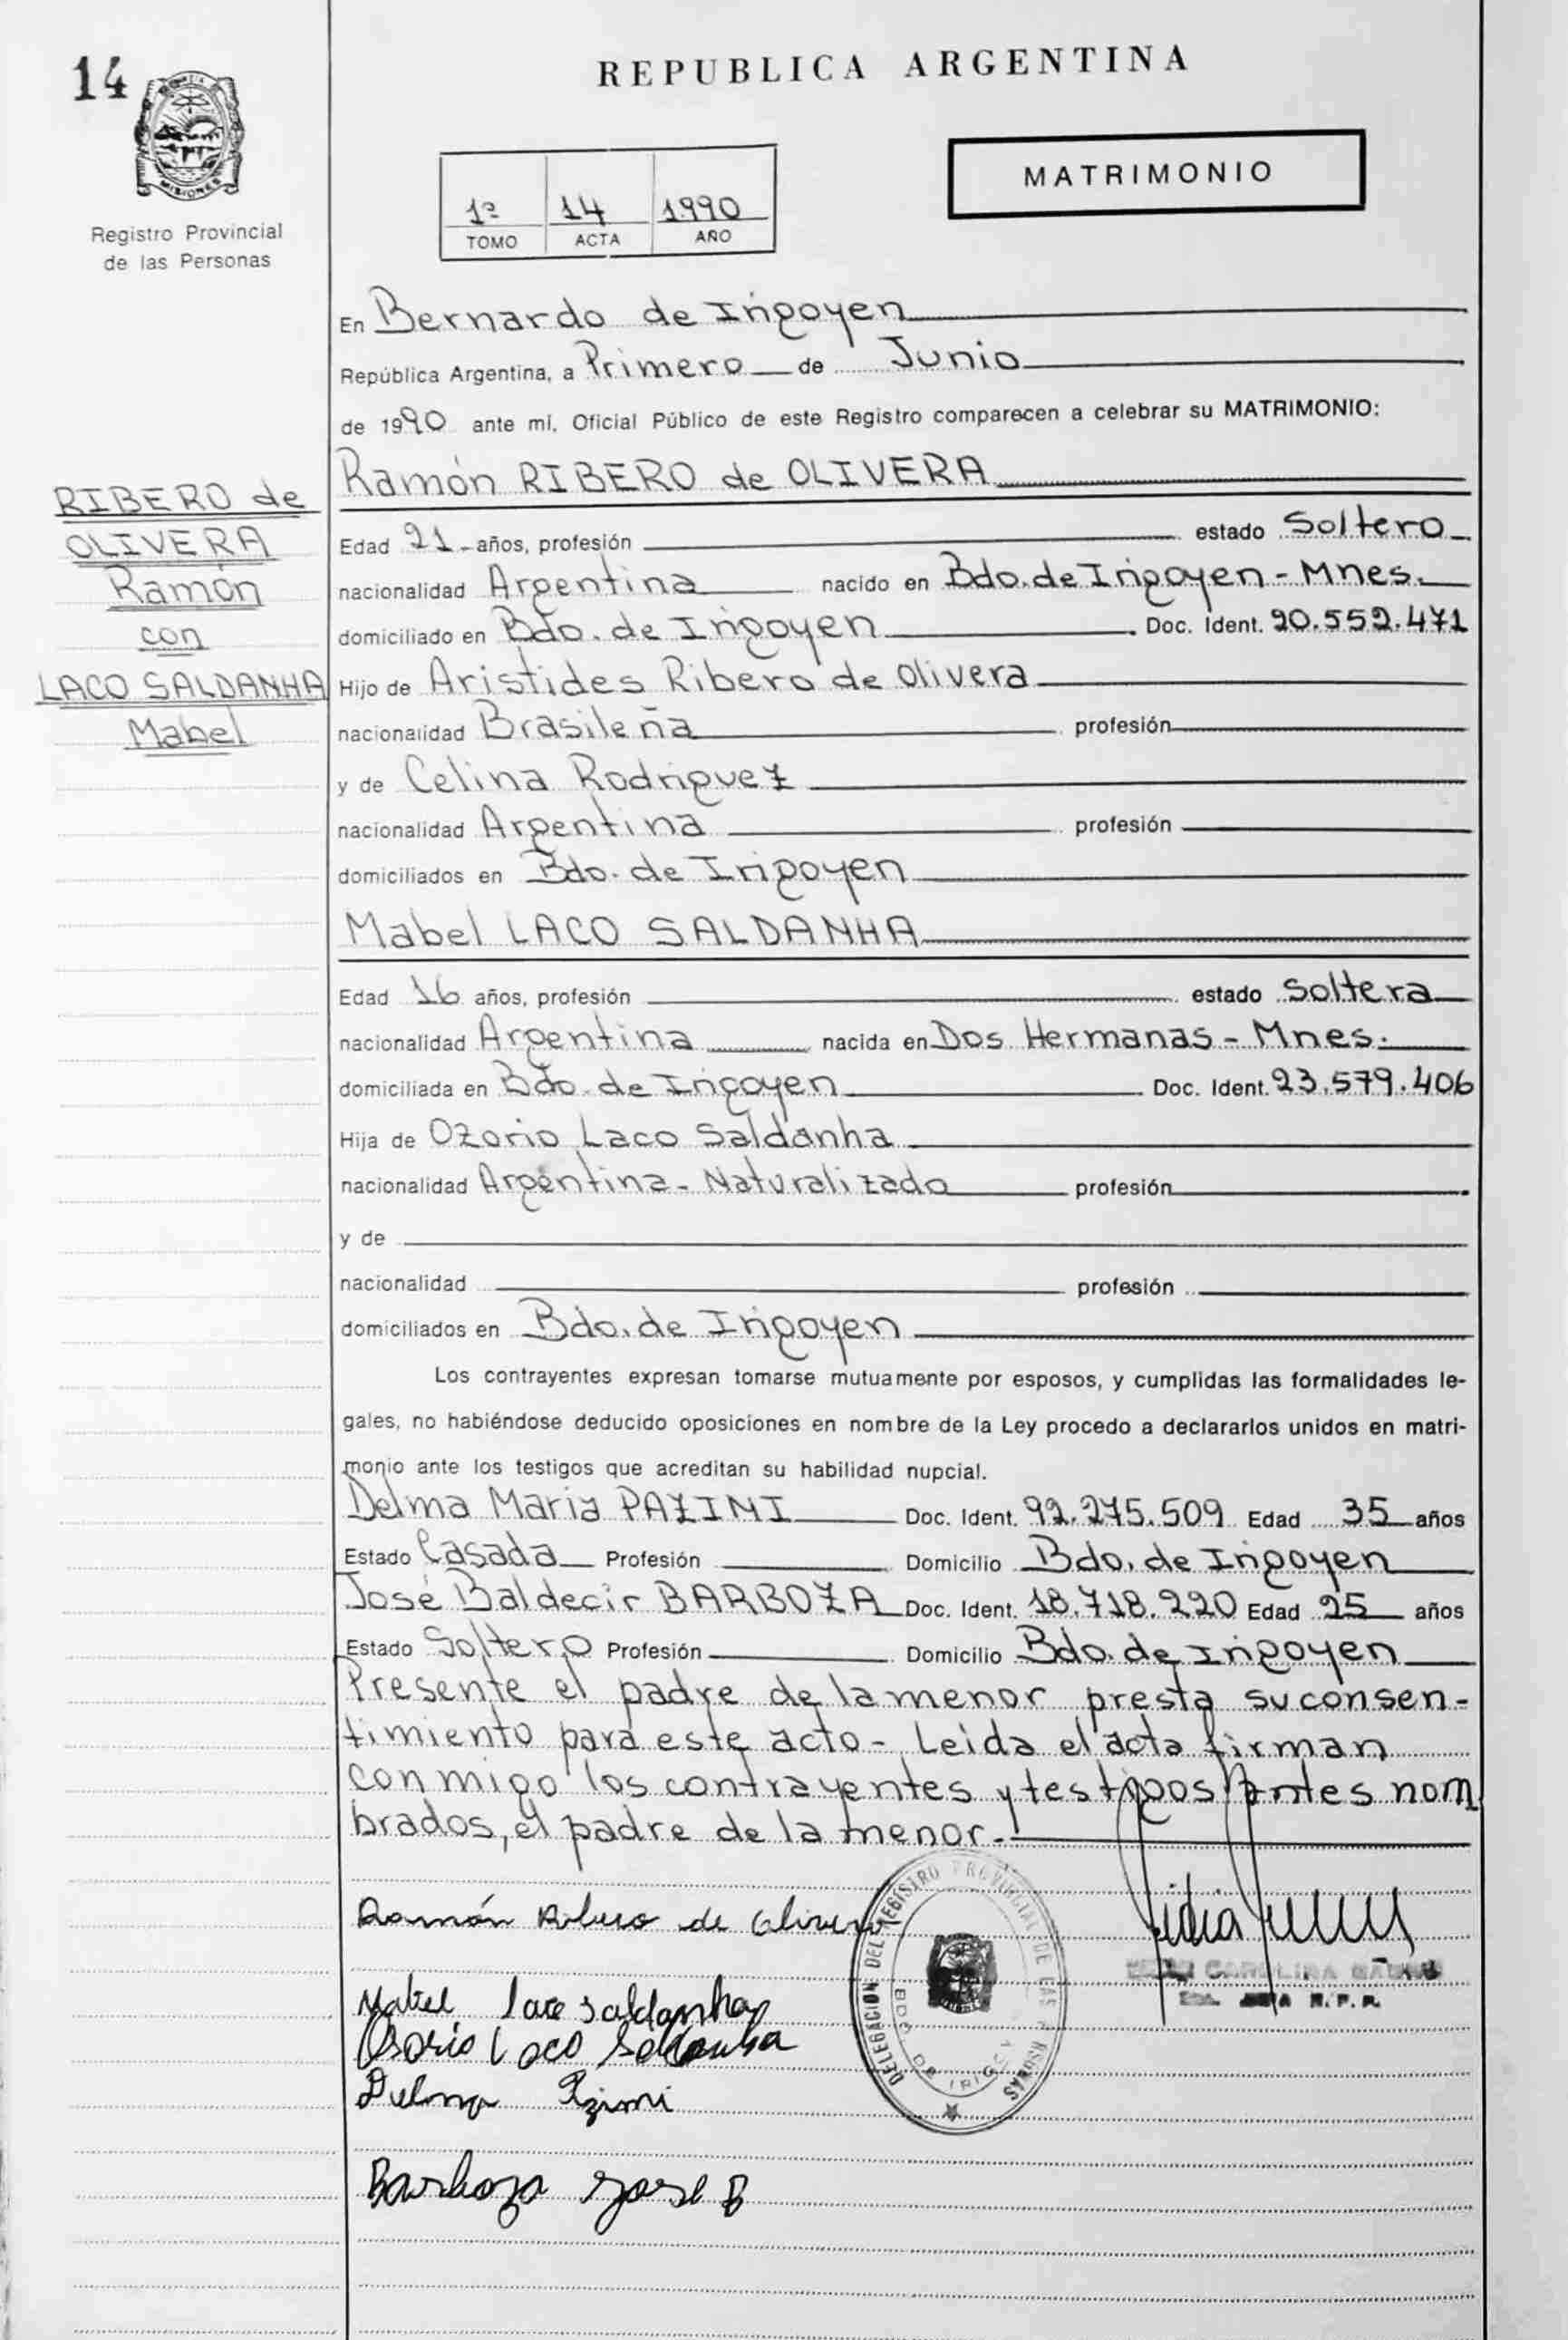 14
MISIONES
Registro Provincial
de las Personas
REPUBLICA ARGENTINA
MATRIMONIO
1º 14 1990
TOMO ACTA AÑO
En Bernardo de Irigoyen
República Argentina, a Primero de Junio
de 1990 ante mí, Oficial Público de este Registro comparecen a celebrar su MATRIMONIO:
RIBERO de
OLIVERA
Ramón
con
LACO SALDANHA
Mabel
Ramón RIBERO de OLIVERA
Edad 21 años, profesión estado Soltero
nacionalidad Argentina nacido en Bdo. de Irigoyen - Mnes.
domiciliado en Bdo. de Irigoyen Doc. Ident. 20.552.471
Hijo de Aristides Ribero de Olivera
nacionalidad Brasileña profesión
y de Celina Rodriguez
nacionalidad Argentina profesión
domiciliados en Bdo. de Irigoyen
Mabel LACO SALDANHA
Edad 16 años, profesión estado Soltera
nacionalidad Argentina nacida en Dos Hermanas - Mnes.
domiciliada en Bdo. de Irigoyen Doc. Ident. 23.579.406
Hija de Ozorio Laco Saldanha
nacionalidad Argentina - Naturalizado profesión
y de
nacionalidad profesión
domiciliados en Bdo. de Irigoyen
Los contrayentes expresan tomarse mutuamente por esposos, y cumplidas las formalidades le-
gales, no habiéndose deducido oposiciones en nombre de la Ley procedo a declararlos unidos en matri-
monio ante los testigos que acreditan su habilidad nupcial.
Delma Maria PAZINI Doc. Ident. 92.275.509 Edad 35 años
Estado Casada Profesión Domicilio Bdo. de Irigoyen
José Baldecir BARBOZA Doc. Ident. 18.718.220 Edad 25 años
Estado Soltero Profesión Domicilio Bdo. de Irigoyen
Presente el padre de la menor presta su consen-
timiento para este acto - Leida el acta firman
conmigo los contrayentes y testigos antes nom
brados, el padre de la menor.-
Ramón Ribero de Olivera
Mabel Laco Saldanha
Osorio Laco Saldanha
Delma Pazini
Barboza José B
DELEGACION DEL REGISTRO PROVINCIAL DE LAS PERSONAS
BDO. DE IRIGOYEN
CAROLINA
R.P.P.